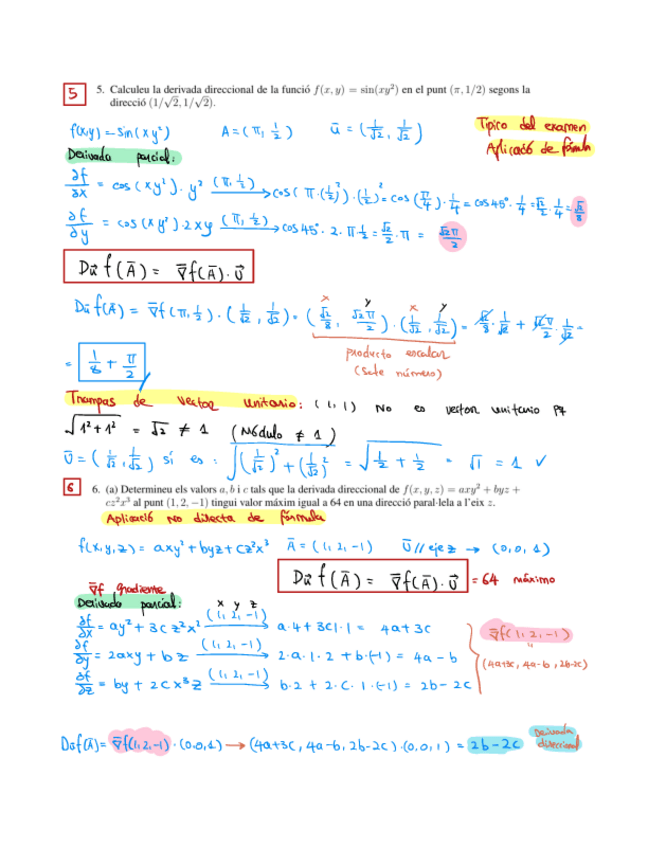 5
5. Calculeu la derivada direccional de la funció f(x, y) = sin(xy²) en el punt (π, 1/2) segons la
direcció (1/√2, 1/√2).
f(x,y) = sin(xy²) A = (π, 1/2) ū = (1/√2, 1/√2)
Típico del examen
Aplicació de fórmula
Derivada parcial:
∂f/∂x = cos(xy²)·y² (π, 1/2) → cos(π·(1/2)²)·(1/2)² = cos(π/4)·1/4 = cos45°·1/4 = √2/2·1/4 = √2/8
∂f/∂y = cos(xy²)·2xy (π, 1/2) → cos45°·2·π·1/2 = √2/2·π = √2π/2
Dū f(Ā) = ∇̄f(Ā)·Ū
x y x y
Dū f(Ā) = ∇̄f(π,1/2)·(1/√2, 1/√2) = (√2/8, √2π/2)·(1/√2, 1/√2) = √2/8·1/√2 + √2π/2·1/√2 =
= 1/8 + π/2
producto escalar
(Sale número)
Trampas de vector unitario: (1,1) No es vector unitario pq
√1²+1² = √2 ≠ 1 (Módulo ≠ 1)
Ū = (1/√2, 1/√2) sí es: √(1/√2)² + (1/√2)² = √1/2 + 1/2 = √1 = 1 ✓
6
6. (a) Determineu els valors a, b i c tals que la derivada direccional de f(x, y, z) = axy² + byz +
cz²x³ al punt (1, 2, −1) tingui valor màxim igual a 64 en una direcció paral·lela a l'eix z.
Aplicació No directa de fórmula
f(x,y,z) = axy² + byz + cz²x³ Ā = (1,2,-1) Ū // eje z → (0,0,1)
Dū f(Ā) = ∇̄f(Ā)·Ū = 64 máximo
∇̄f gradiente
Derivada parcial: x y z
∂f/∂x = ay² + 3cz²x² (1,2,-1) → a·4 + 3c1·1 = 4a+3c
∂f/∂y = 2axy + bz (1,2,-1) → 2·a·1·2 + b·(-1) = 4a - b
∂f/∂z = by + 2cx³z (1,2,-1) → b·2 + 2·c·1·(-1) = 2b - 2c
∇̄f(1,2,-1)
(4a+3c, 4a-b, 2b-2c)
Dūf(Ā) = ∇̄f(1,2,-1)·(0,0,1) → (4a+3c, 4a-b, 2b-2c)·(0,0,1) = 2b-2c
Derivada
direccional